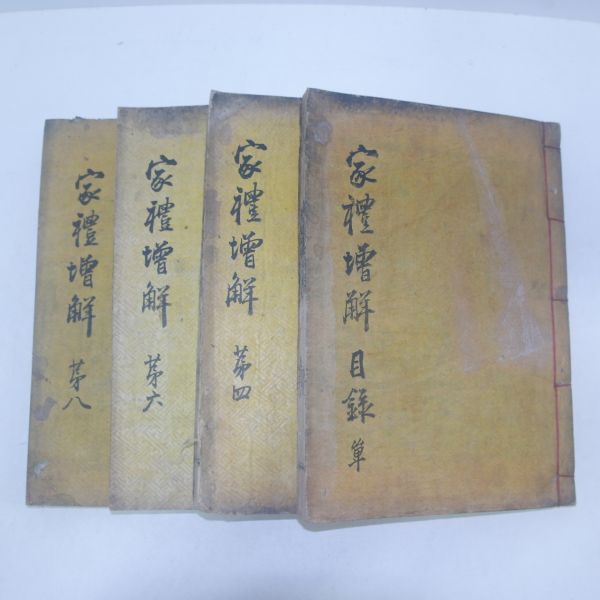 家禮增解 目錄 單
家禮增解 苐四
家禮增解 苐六
家禮增解 苐八